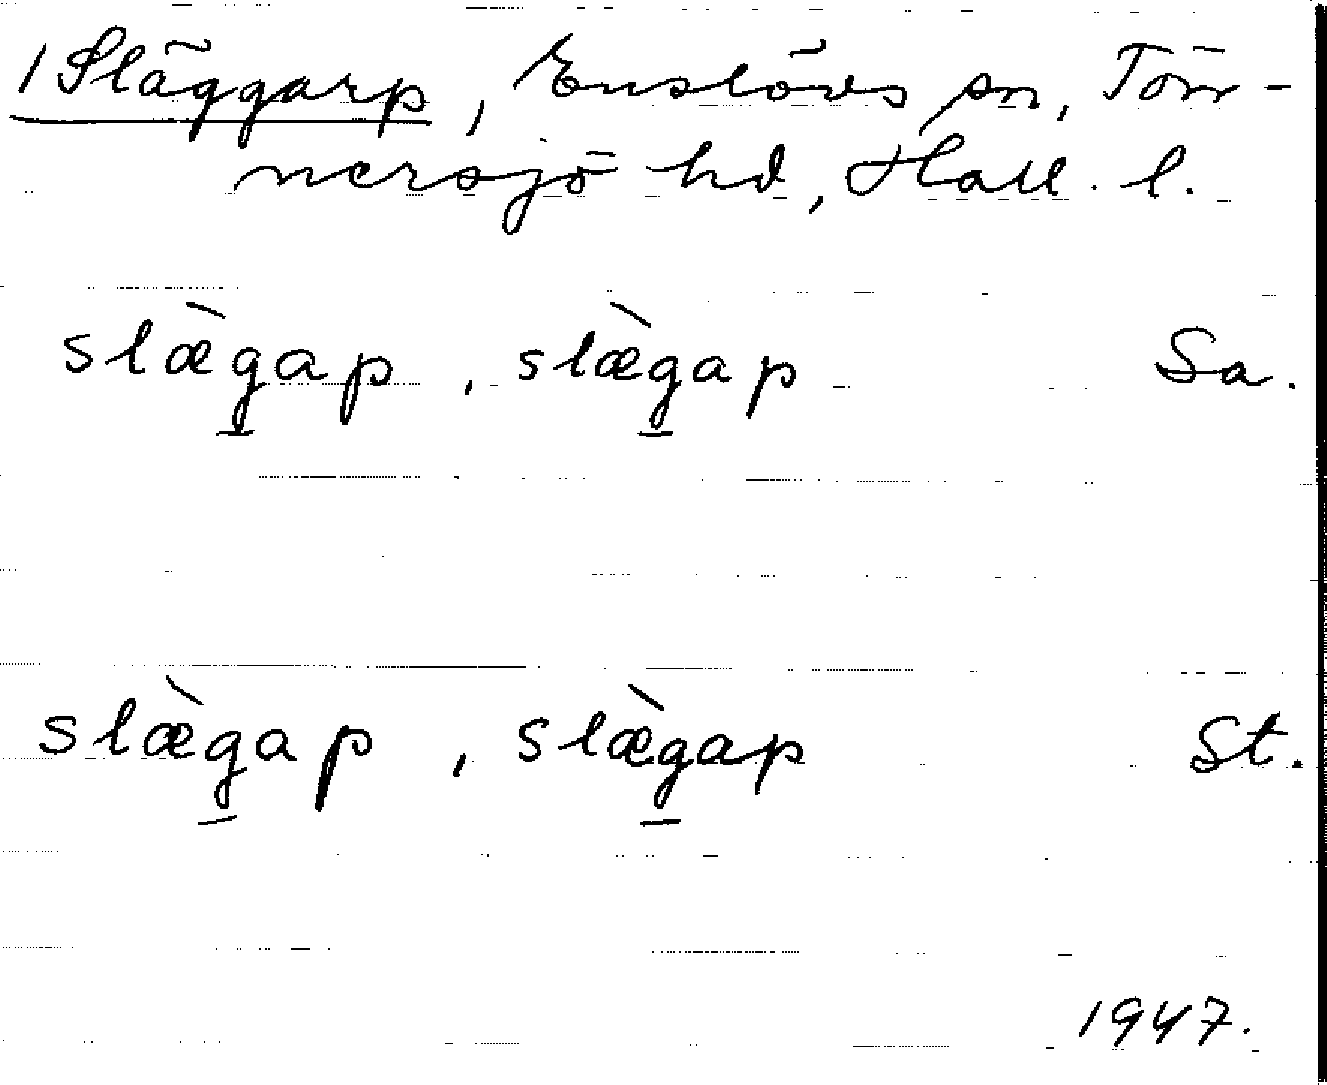 1 Släggarp, Enslövs sn, Törr-
nersjö hd, Hall. l.
slæ̀g̱ap, slæ̀g̱ap Sa.
slæ̀g̱ap, slæ̀g̱ap St.
1947.